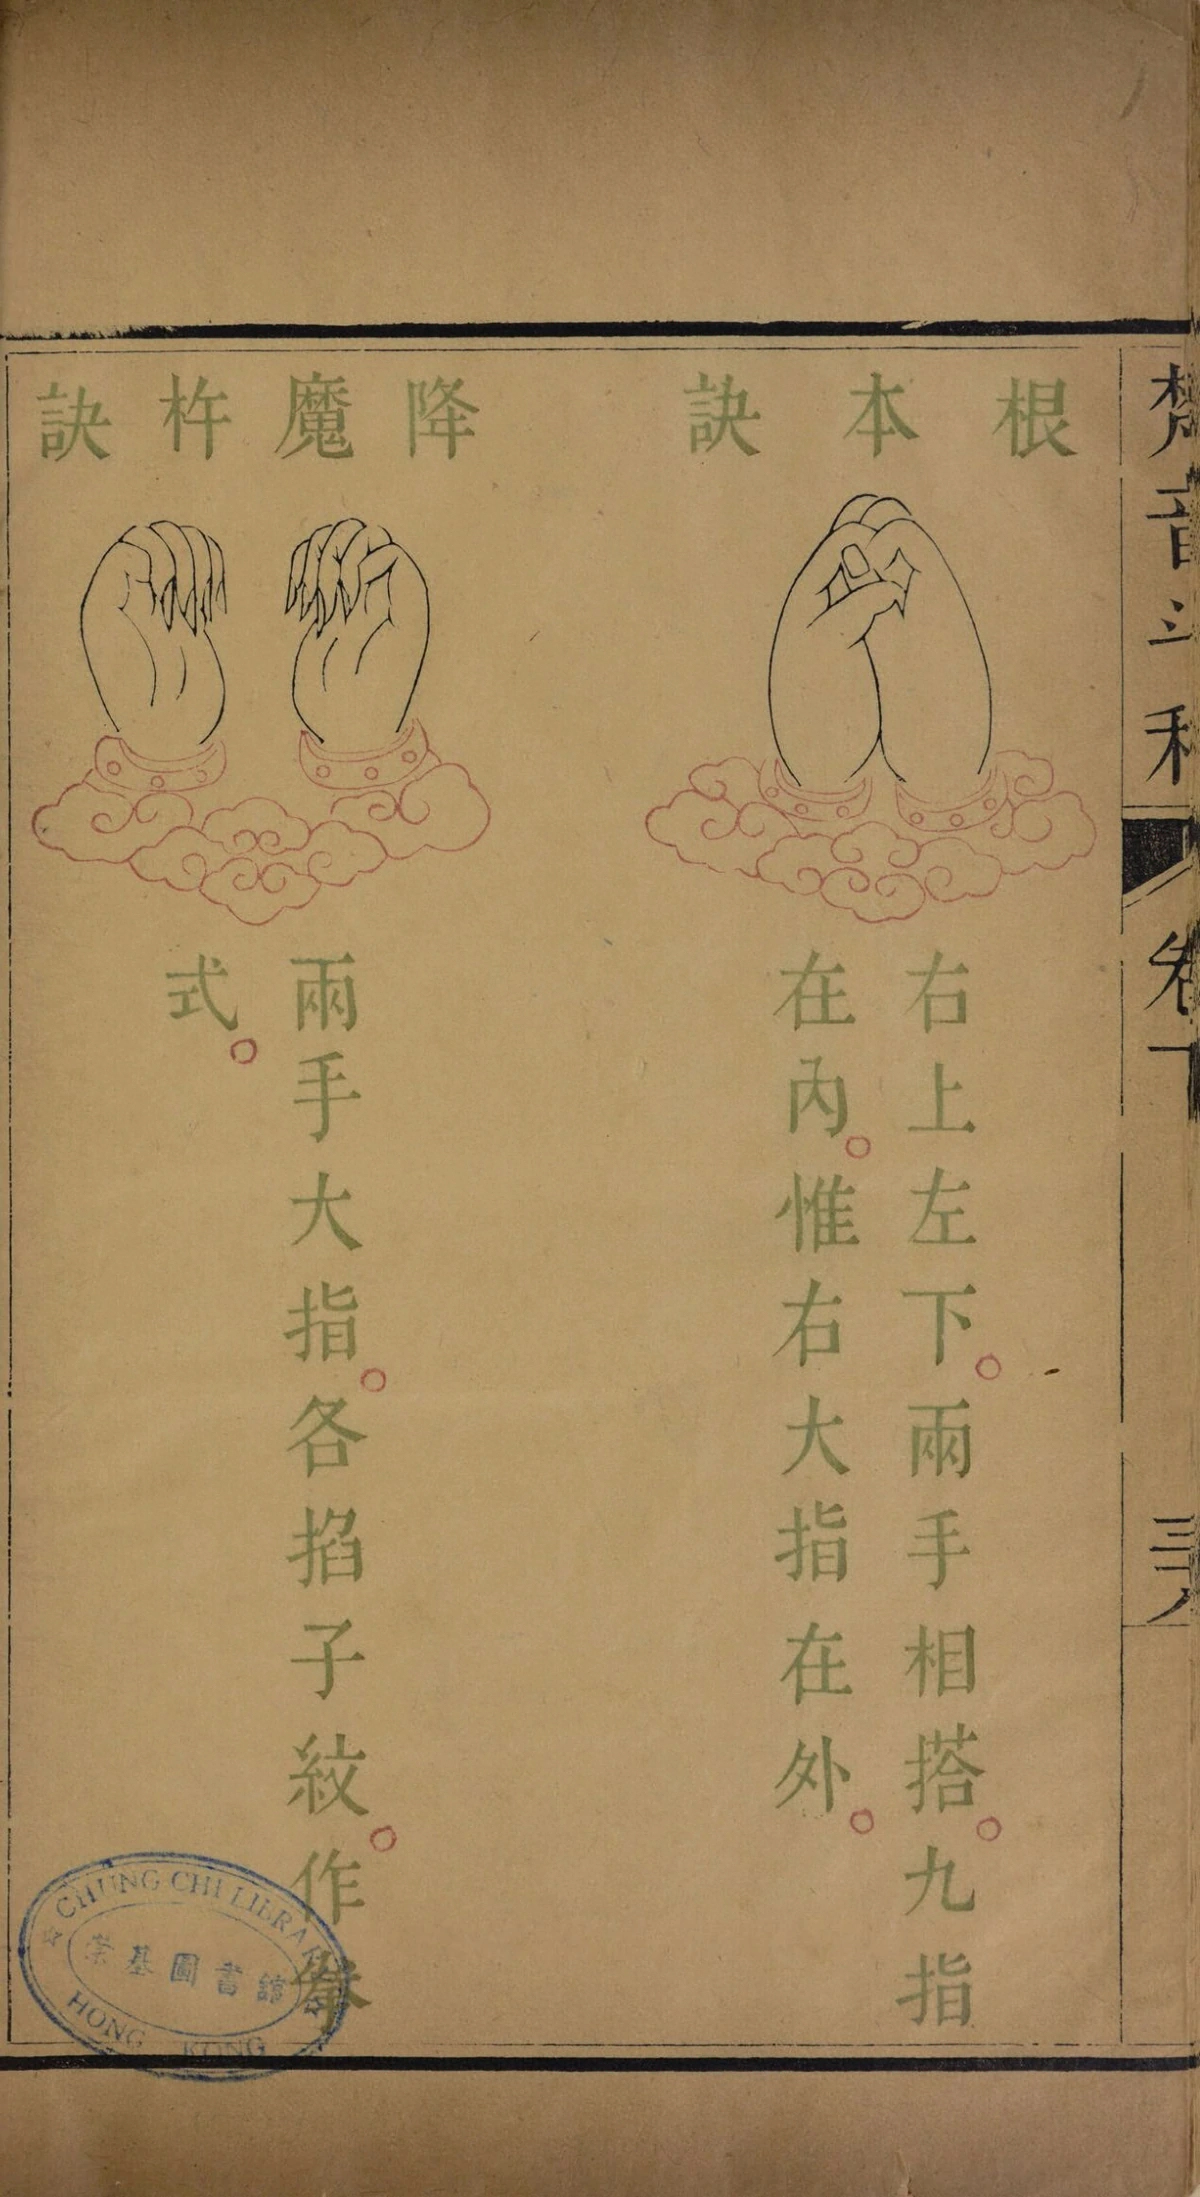 梵音斗科
卷下
三八
根本訣
右上左下。兩手相搭。九指
在內。惟右大指在外。
降魔杵訣
兩手大指。各掐子紋。作拳
式。
CHUNG CHI LIBRARY
崇基圖書館
HONG KONG